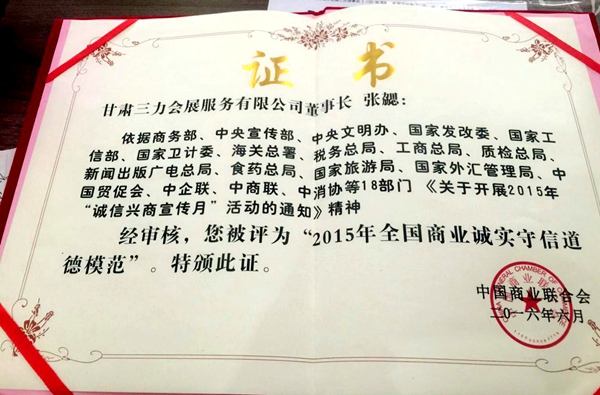 证书
甘肃三力会展服务有限公司董事长 张勰：
依据商务部、中央宣传部、中央文明办、国家发改委、国家工
信部、国家卫计委、海关总署、税务总局、工商总局、质检总局、
新闻出版广电总局、食药总局、国家旅游局、国家外汇管理局、中
国贸促会、中企联、中商联、中消协等18部门《关于开展2015年
“诚信兴商宣传月”活动的通知》精神
经审核，您被评为“2015年全国商业诚实守信道
德模范”。特颁此证。
中国商业联合会
二〇一六年六月